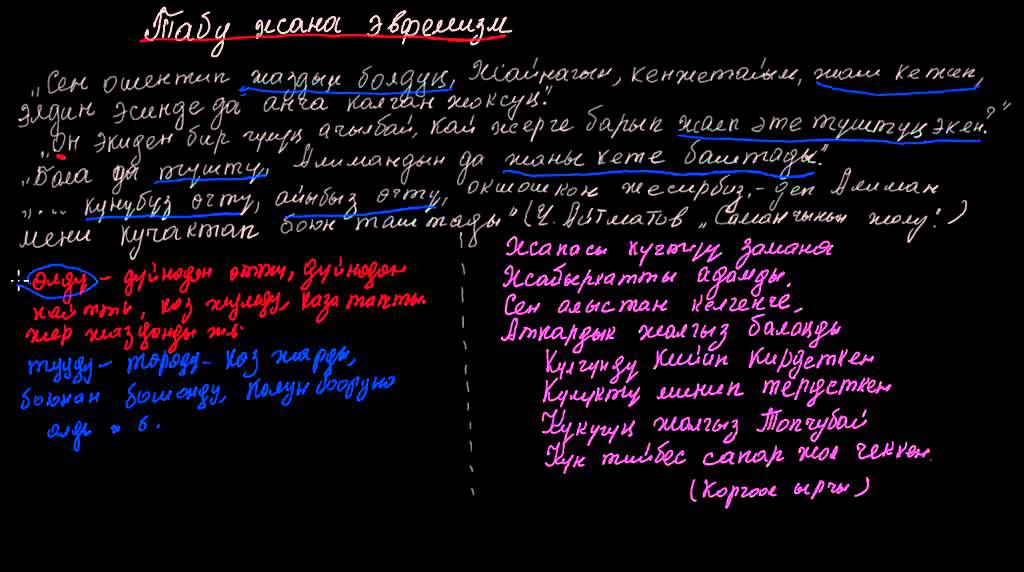 Табу жана эвфемизм
"Сен ошентип жаздым болдуң, Жайнагым, кенжетайым, жаш кеткен,
Элдин эсинде да анча калган жоксуң".
"Он экиден бир гүлүң ачылбай, кай жерге барып жалп эте түштүң экен?"
"Бала да түштү, Алимандын да жаны кете баштады".
"... күнүбүз өчтү, айыбыз өчтү, окшошкон жесирбиз, - деп Алиман
мени кучактап боюн таштады" (Ч. Айтматов "Саманчынын жолу")
өлдү - дүйнөдөн өттү, дүйнөдөн
кайтты, көз жумду, каза тапты.
жер жазданды ж.б.
тууду - төрөдү - көз жарды,
боюнан бошонду, колун бооруна
алды ж. б.
Жапасы күчтүү замана
Жабыркатты адамды.
Сен алыстан келгенче,
Аткардык жалгыз балаңды
Күлгүндү кийип кирдеткен
Күлүктү минип тердеткен
Күкүгүң жалгыз Топчубай
Күн тийбес сапар жол чеккен.
(Коргоол ырчы)